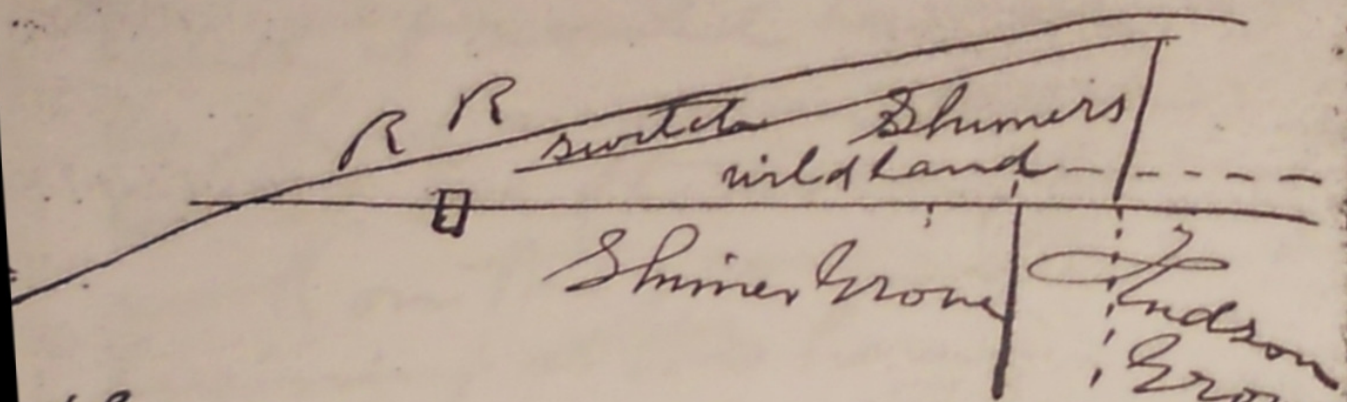 R R
switch Shimers
wild land
Shimer Grove
Judson
Gro